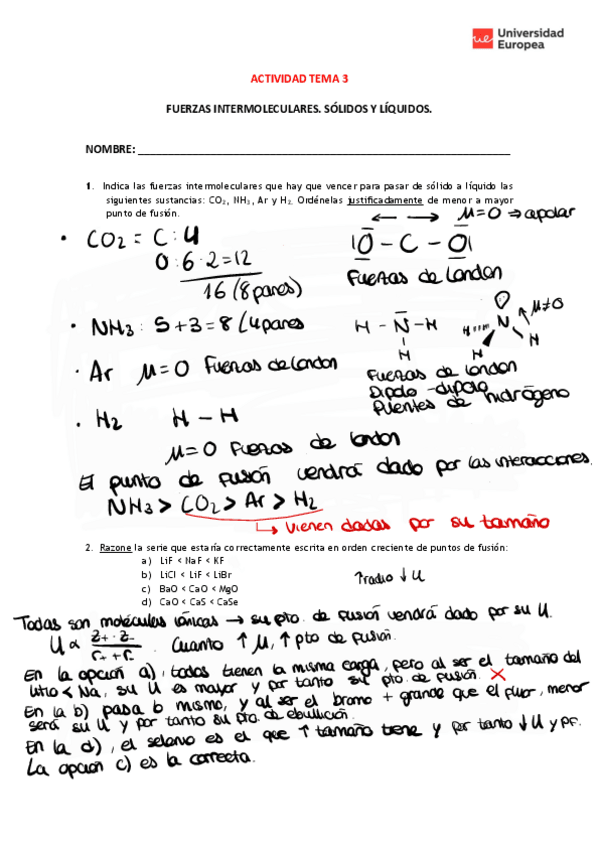 ue Universidad Europea
ACTIVIDAD TEMA 3
FUERZAS INTERMOLECULARES. SÓLIDOS Y LÍQUIDOS.
NOMBRE: ____________________
1. Indica las fuerzas intermoleculares que hay que vencer para pasar de sólido a líquido las
siguientes sustancias: CO₂, NH₃, Ar y H₂. Ordénelas justificadamente de menor a mayor
punto de fusión.
μ=0 ⇒ apolar
• CO2 = C : 4
O : 6 · 2 = 12
16 (8 pares)
|O – C – O|
Fuerzas de London
• NH3 : 5 + 3 = 8 (4 pares
H – N – H
H
N
H
H
H
μ≠0
Fuerzas de London
Dipolo - dipolo
Puentes de hidrógeno
• Ar μ=0 Fuerzas de London
• H2 H – H
μ=0 Fuerzas de London
El punto de fusión vendrá dado por las interacciones.
NH3 > CO2 > Ar > H2
↳ vienen dadas por su tamaño
2. Razone la serie que estaría correctamente escrita en orden creciente de puntos de fusión:
a) LiF < NaF < KF
b) LiCl < LiF < LiBr
c) BaO < CaO < MgO
d) CaO < CaS < CaSe
↑radio ↓U
Todas son moléculas iónicas → su pto. de fusión vendrá dado por su U.
U ∝ Z+ · Z- / r+ + r- . Cuanto ↑ μ, ↑ pto de fusión.
En la opción a), todos tienen la misma carga, pero al ser el tamaño del
litio < Na, su U es mayor y por tanto su pto. de fusión. ✗
En la b) pasa lo mismo, y al ser el bromo + grande que el fluor, menor
será su U y por tanto su pto. de ebullición.
En la d), el selenio es el que ↑ tamaño tiene y por tanto ↓U y PF.
La opción c) es la correcta.